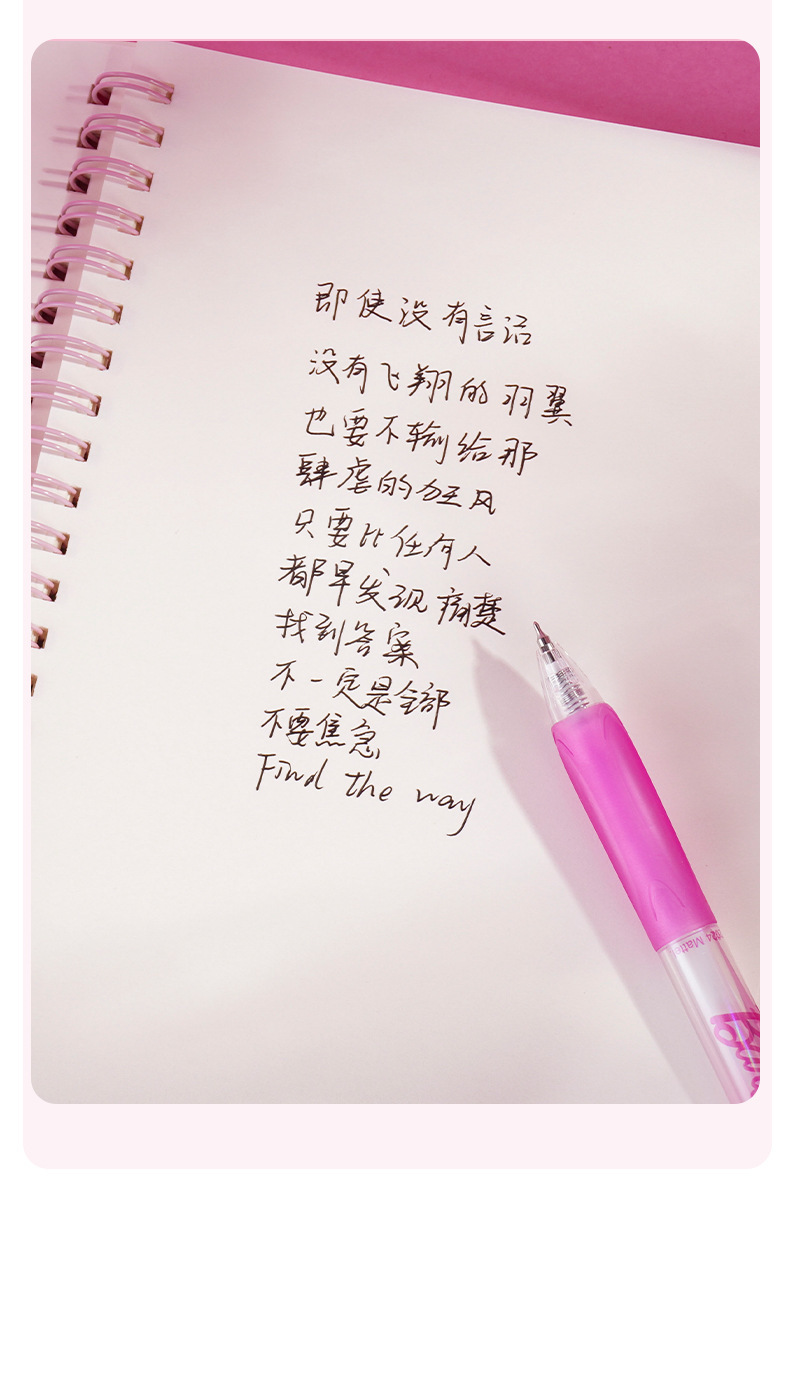 即使没有言语
没有飞翔的羽翼
也要不输给那
肆虐的狂风
只要比任何人
都早发现痛楚
找到答案
不一定是全部
不要焦急
Find the way
2024 Matte